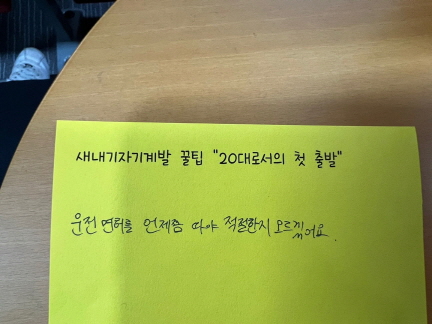 새내기자기계발 꿀팁 "20대로서의 첫 출발"
운전 면허를 언제쯤 따야 적절한지 모르겠어요.